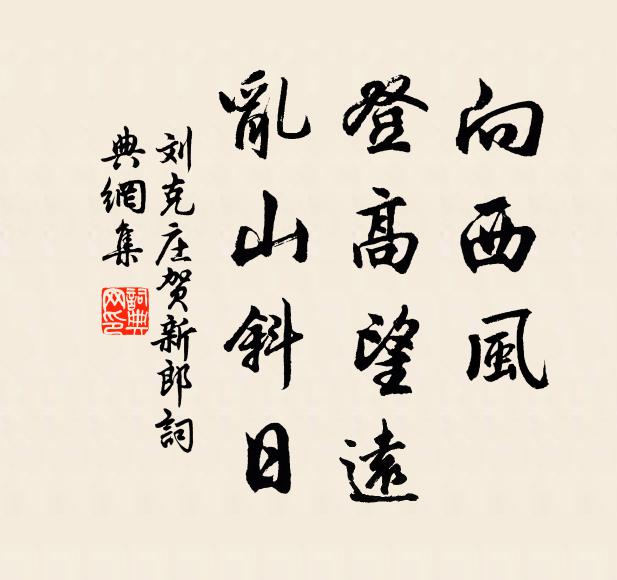 向西風
登高望遠
亂山斜日
刘克庄贺新郎詞
典網集
詞典
网印